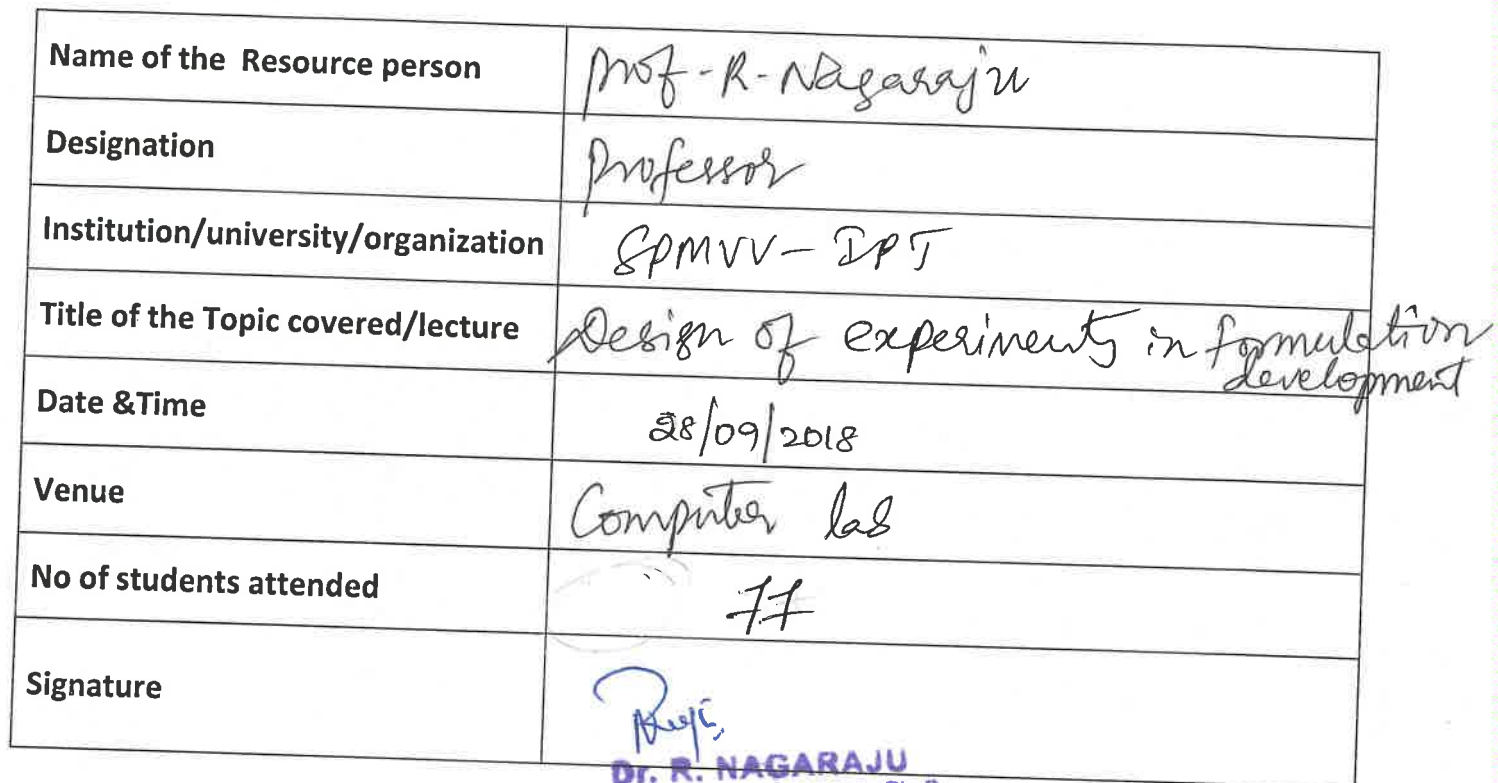 Name of the Resource person Prof-R-Nagaraju
Designation Professor
Institution/university/organization SPMVV-IPT
Title of the Topic covered/lecture Design of experiments in formulation
development
Date &Time 28/09/2018
Venue Computer lab
No of students attended 77
Signature
Dr. R. NAGARAJU